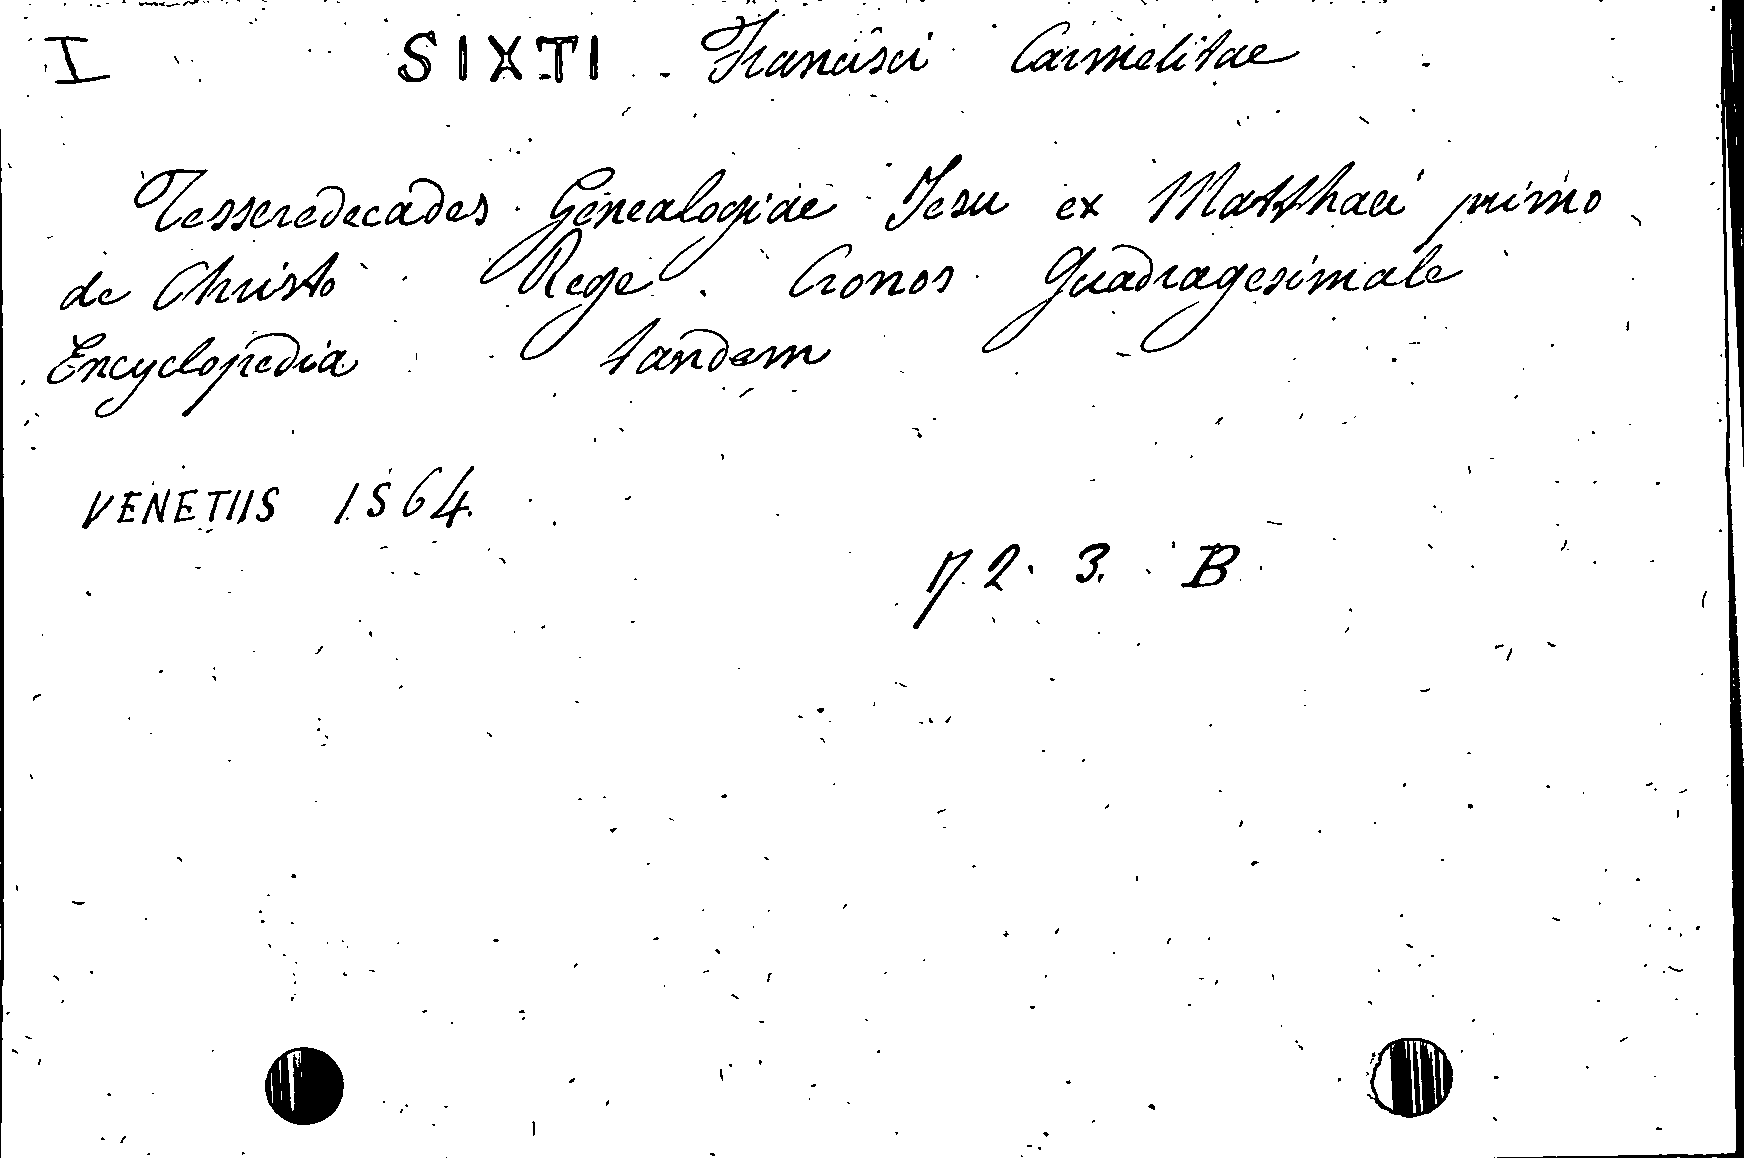 I SIXTI Francisci Carmelitae
Tesseredecades Genealogiae Jesu ex Matthaei primo
de Christo Rege. Cronos Quadragesimale
Encyclopedia tandem
VENETIIS 1564.
17. 2. 3. B